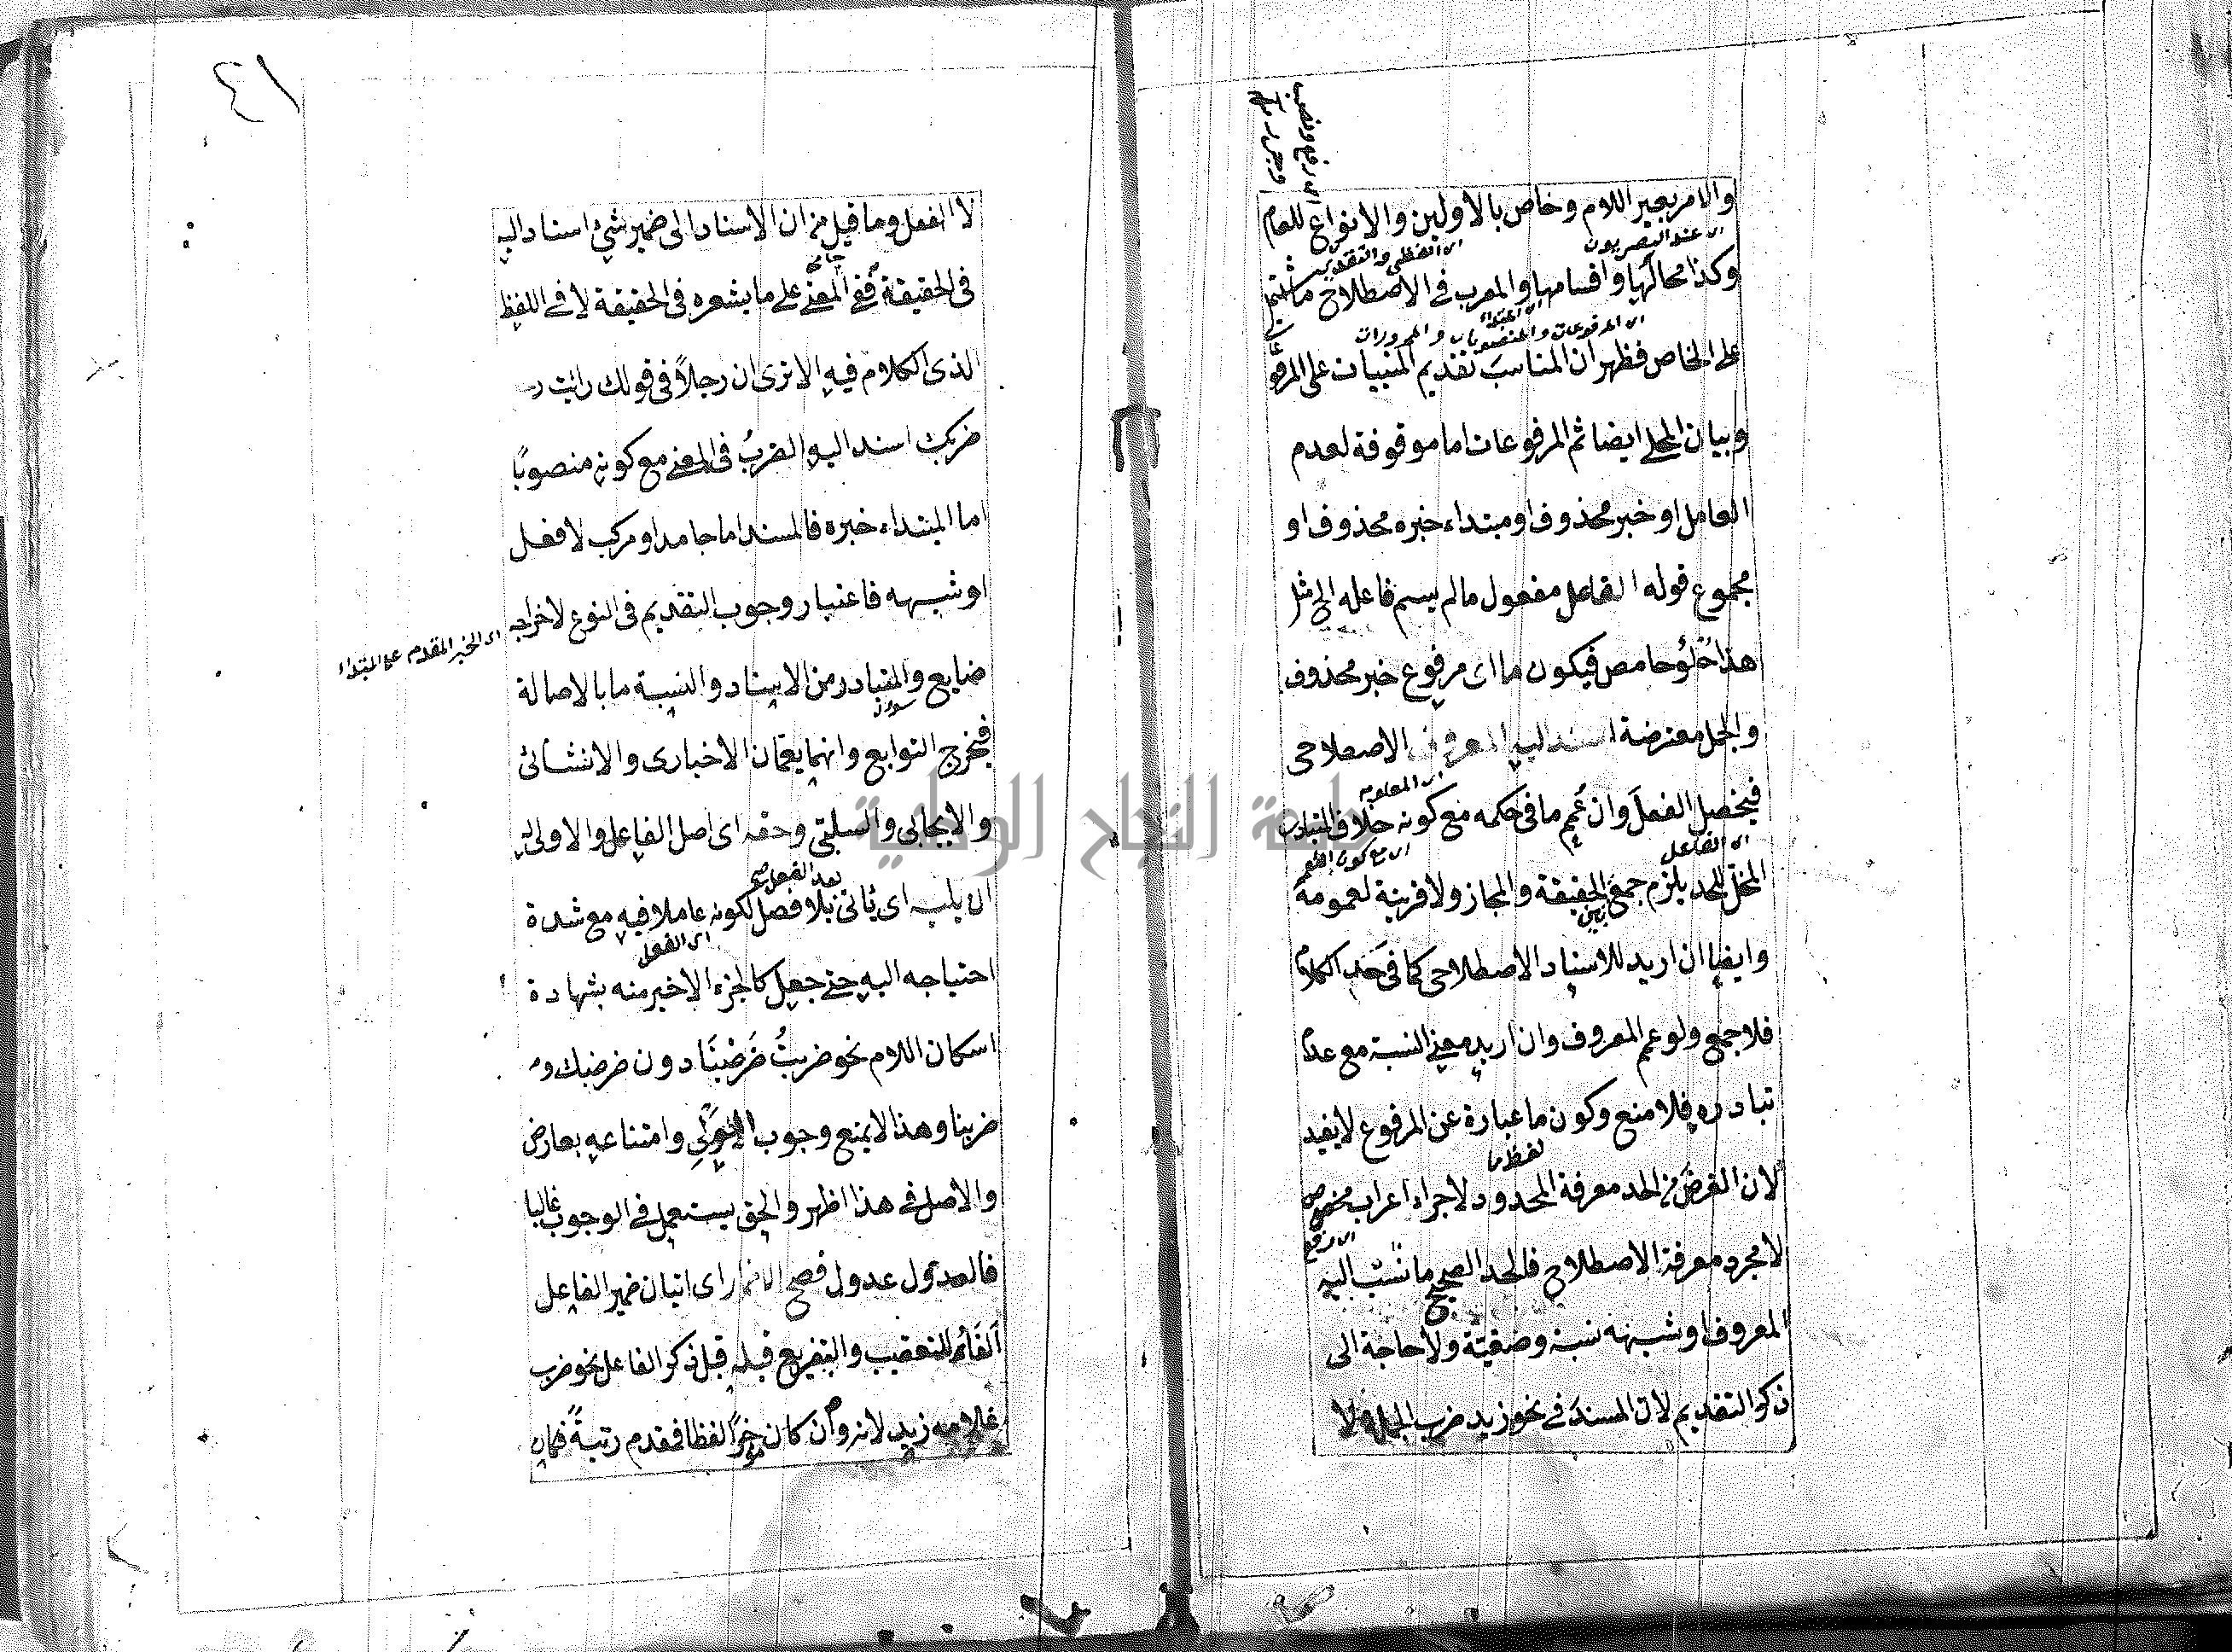 اى رفع ونصب
وجر وجزم
والامر بغير اللام وخاص بالاولين والانواع للعام
اى عند البصريون
اى اللفظى والتقديرى
وكذا محالها واقسامها والمعرب فى الاصطلاح ما اشتمل
اى المرفوعات والمنصوبات والمجرورات
على الخاص فظهر ان المناسب تقديم المبنيات على المرفوعات
وبيان المحلى ايضا ثم المرفوعات اما موقوفة لعدم
العامل او خبر محذوف او مبتداء خبره محذوف او
مجموع قوله الفاعل مفعول مالم يسم فاعله الخ مثل
هذا حلو حامض فيكون ما اى مرفوع خبر محذوف
والجمل معترضة اسند اليه المعروف الاصطلاحى
اى المعلومية
فيخصل الفعل وان عم ما فى حكمه مع كونه خلاف المتبادر
اى الفاعل
المخل للحد يلزم جمع الحقيقة والمجاز ولا قرينة لعمومه
بين
وايضا ان اريد للاسناد الاصطلاحى كما فى حد الكلام
فلا جمع ولو عم المعروف وان اريد معنى النسبة مع عدم
تبادره فلا منع وكون ما عبارة عن المرفوع لا يفيد
لفظ ما
لان الغرض من الحد معرفة المحدود لاجراء اعراب مخصوص
اى رفع
لا مجرد معرفة الاصطلاح فالحد الصحيح ما نسب اليه
المعروف او شبهه نسبة وصفية ولا حاجة الى
ذكر التقديم لان المسند فى نحو زيد ضرب الجملة لا
٤١
لا الفعل وما قيل من ان الاسناد الى ضمير شئ اسناد اليه
فى الحقيقة ففى المعنى على ما يشعره فى الحقيقة لا فى اللفظ
الذى الكلام فيه الا ترى ان رجلاً فى قولك رايت
ضربك اسند اليه الضرب فى المعنى مع كونه منصوبًا
اما المبتداء خبره فالمسند اما جامد او مركب لا فعل
او شبهه فاعتبار وجوب التقديم فى النوع لاخراجه
اى الخبر المقدم على المبتداء
ضايع والمتبادر من الاسناد والنسبة ما بالاصالة
فيخرج التوابع وانهما يعمان الاخبارى والانشائى
والايجابى والسلبى وحقه اى اصل الفاعل والاولى به
بعد الفعل صح
ان يليه اى ياتى بلا فصل لكونه عاملا فيه مع شدة
اى الفعل
احتياجه اليه حتى جعل كالجزء الاخير منه بشهادة
اسكان اللام نحو ضربتُ ضَرَبْنَا دون ضربك و
ضربنا وهذا لا يمنع وجوب وامتناعه بعارض
والاصل فى هذا اظهر والحق يستعمل فى الوجوب غالبا
فالعدول عدول فصح الاضمار اى اتيان ضمير الفاعل
الفاء للتعقيب والتفريع قبله قبل ذكر الفاعل نحو ضرب
غلامه زيد لانه وان كان مؤخرًا لفظا فمقدم رتبةً
جامعة النجاح الوطنية